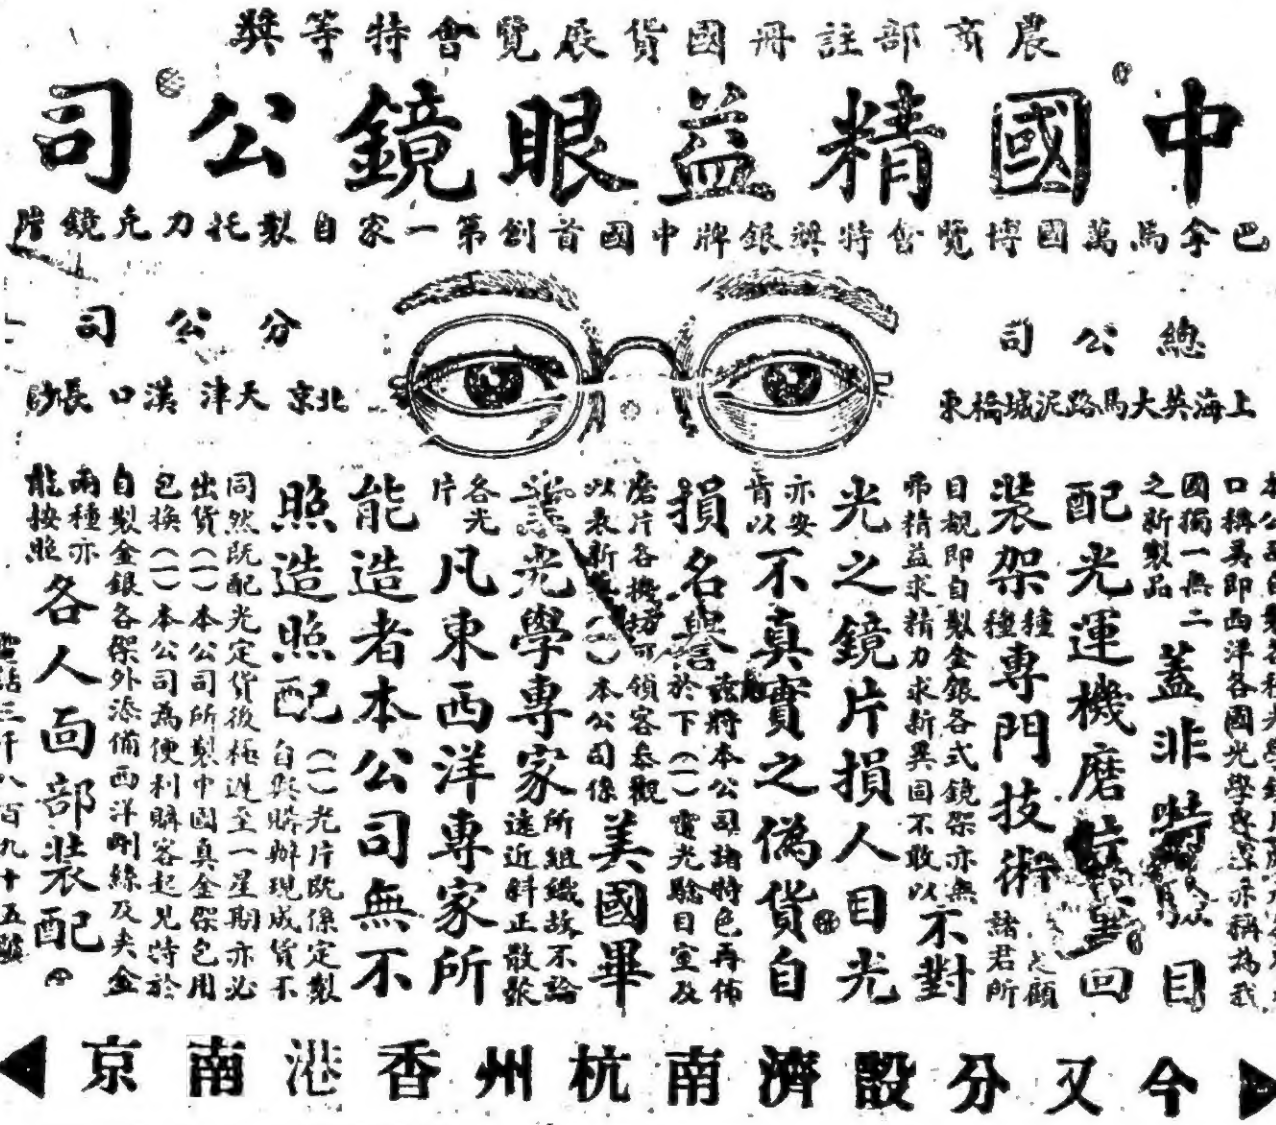 農商部註冊國貨展覽會特等獎
中國精益眼鏡公司
巴拿馬萬國博覽會特獎銀牌中國首創第一家自製托力克鏡片
總公司
上海英大馬路泥城橋東
分公司
北京天津漢口長沙
口稱異即西洋各國光學專家亦稱為我
國獨一無二
之新製品
蓋非
目
配光運機磨
回
裝架
種種
專門技術
顧
諸君所
目覩即自製金銀各式鏡架亦無
弗精益求精力求新異固不敢以
不對
光之鏡片損人目光
亦安
肯以
不真實之偽貨自
損名譽
茲將本公司諸特色再佈
於下(一)電光驗目室及
磨片各機均可領客參觀
以表新異(一)本公司係
美國畢
業光學專家
所組織故不論
遠近斜正散張
各光
片
凡東西洋專家所
能造者本公司無不
照造照配
(一)光片既係定製
自與購辦現成貨不
同然既配光定貨後極遲至一星期亦必
出貨(一)本公司所製中國真金架包用
包換(一)本公司為便利購客起見特於
自製金銀各架外添備西洋剛絲及夾金
兩種亦
能按照
各人面部裝配
電話三千八百九十五號
今又分設濟南杭州香港南京